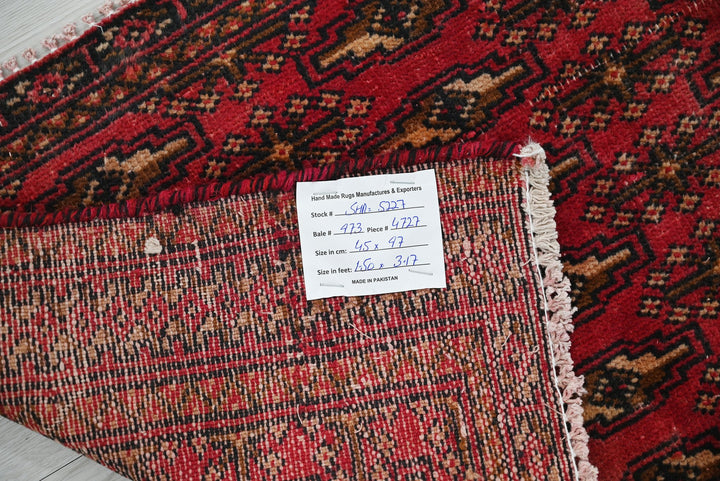 Hand Made Rugs Manufactures & Exporters
Stock # SHA- 5227
Bale # 973 Piece # 4727
Size in cm: 45 x 97
Size in feet: 1.50 x 3.17
MADE IN PAKISTAN